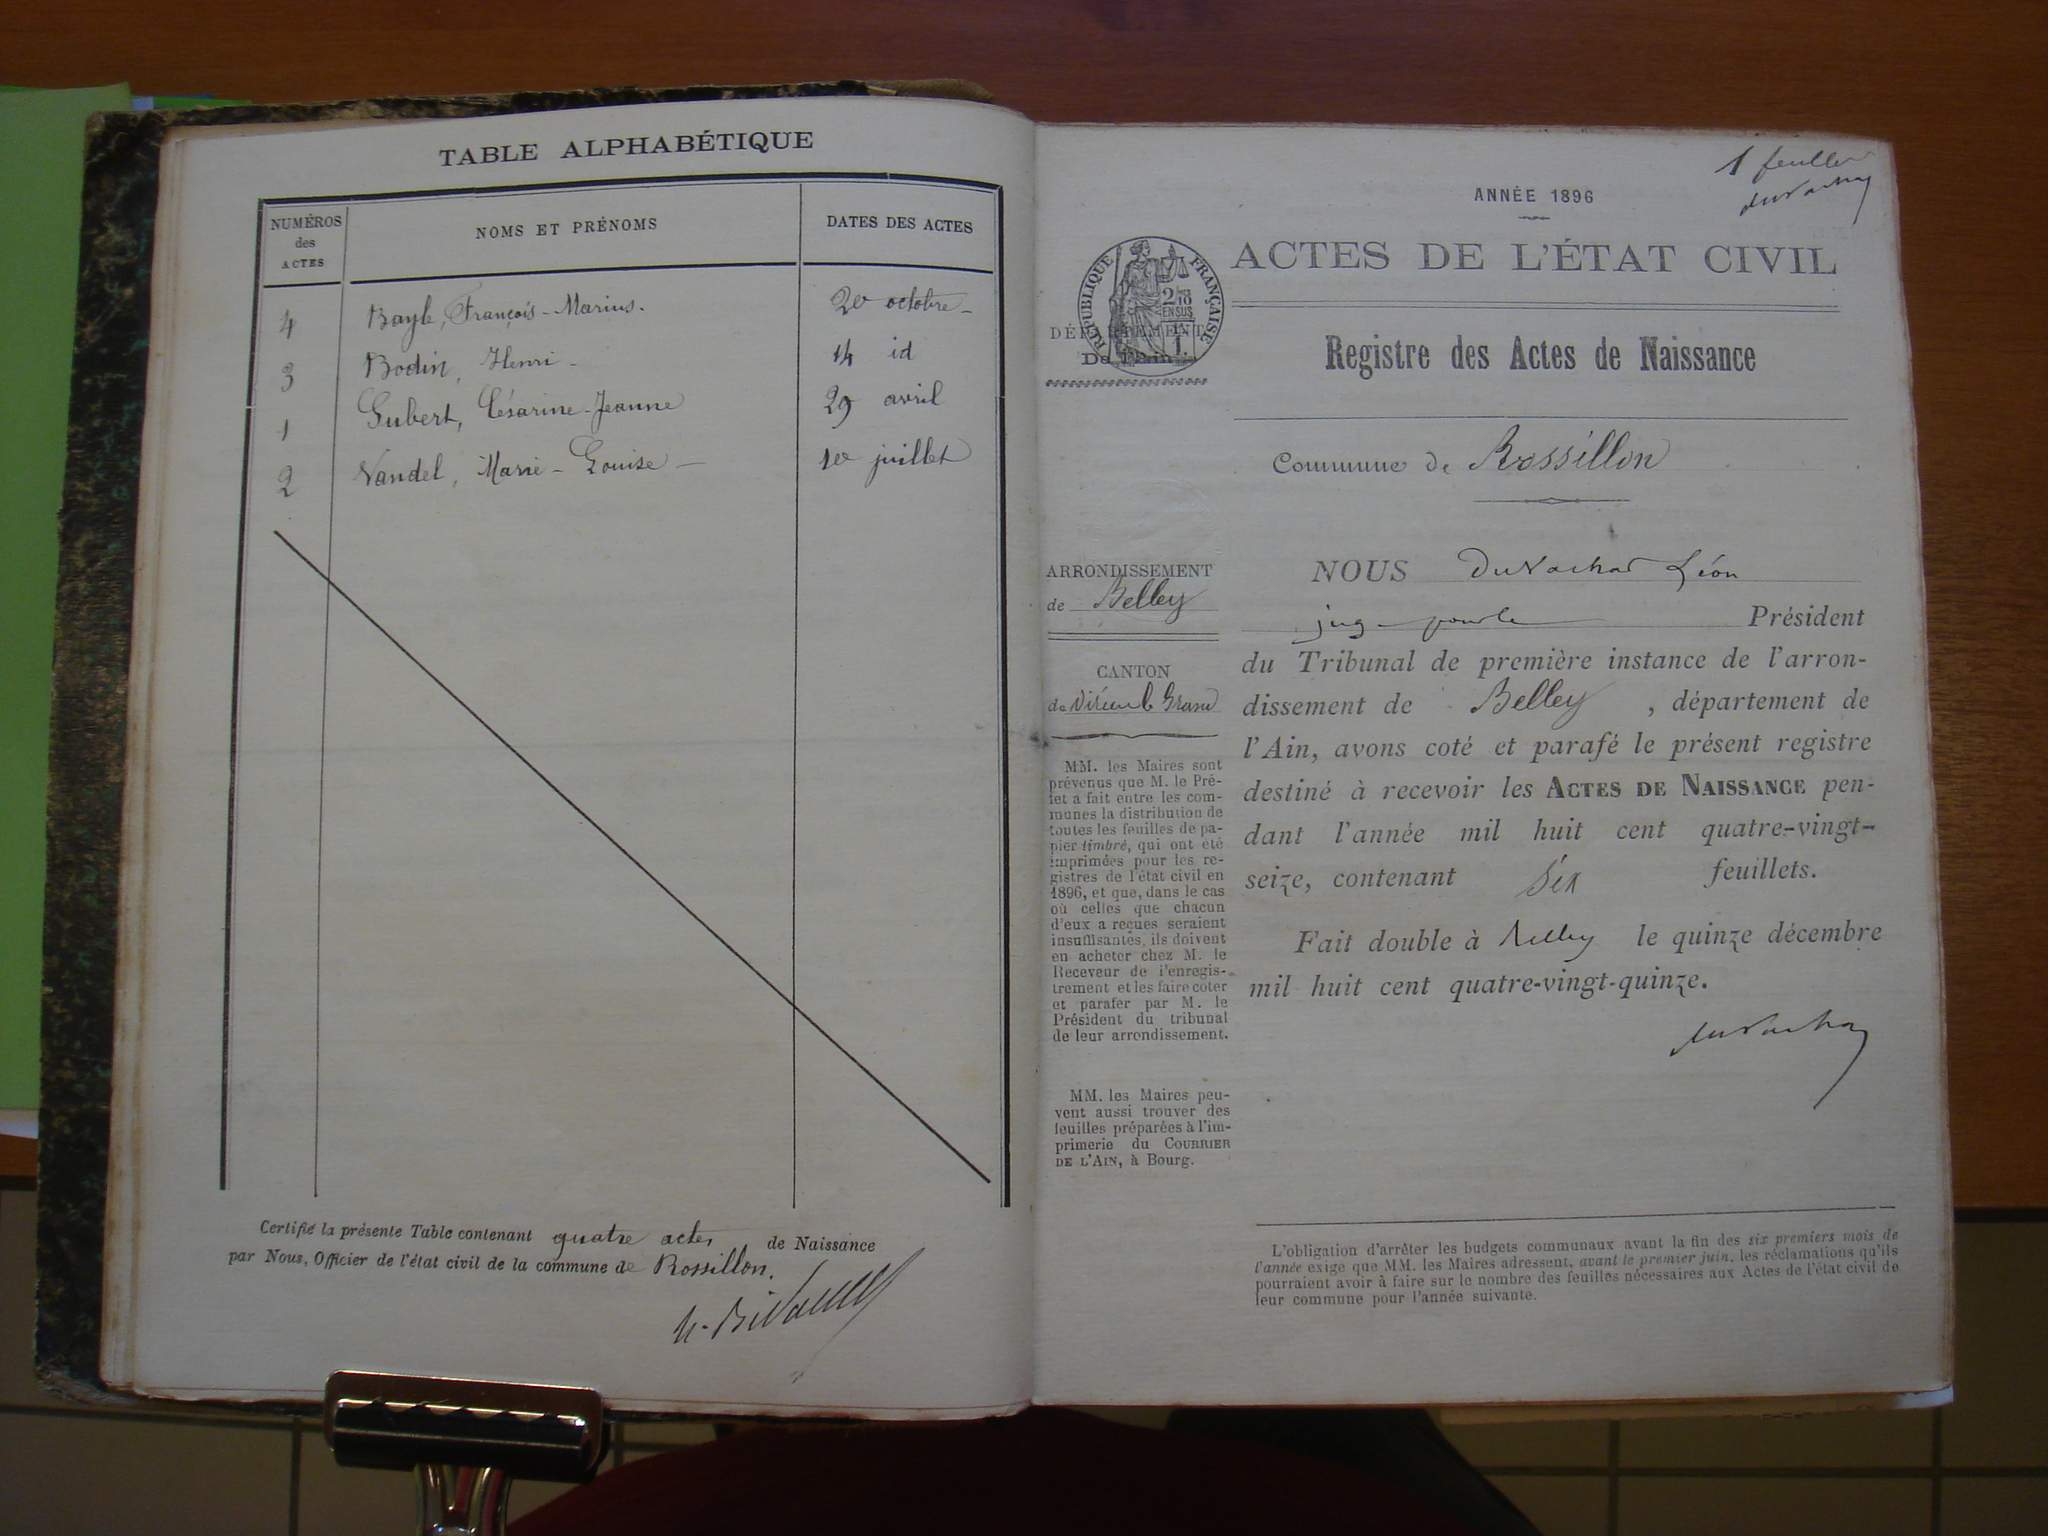 TABLE ALPHABÉTIQUE
NUMÉROS des ACTES
NOMS ET PRÉNOMS
DATES DES ACTES
4 Bayle, François-Marius. octobre
3 Bodin, Henri - 14 id
1 Gubert, Césarine-Jeanne 29 avril
2 Vandel, Marie-Louise - 1er juillet
Certifié la présente Table contenant quatre actes de Naissance
par Nous, Officier de l'état civil de la commune de Rossillon.
1 feuillet
ANNÉE 1896
ACTES DE L'ÉTAT CIVIL
RÉPUBLIQUE FRANÇAISE
2/10
EN SUS
DÉPARTEMENT
De l'Ain.
Registre des Actes de Naissance
Commune de Rossillon
ARRONDISSEMENT
de Belley
CANTON
de Virieu le Grand
MM. les Maires sont
prévenus que M. le Pré-
fet a fait entre les com-
munes la distribution de
toutes les feuilles de pa-
pier timbré, qui ont été
imprimées pour les re-
gistres de l'état civil en
1896, et que, dans le cas
où celles que chacun
d'eux a reçues seraient
insuffisantes, ils doivent
en acheter chez M. le
Receveur de l'enregis-
trement et les faire coter
et parafer par M. le
Président du tribunal
de leur arrondissement.
MM. les Maires peu-
vent aussi trouver des
feuilles préparées à l'im-
primerie du COURRIER
DE L'AIN, à Bourg.
NOUS Duvachat Léon
juge pour le Président
du Tribunal de première instance de l'arron-
dissement de Belley, département de
l'Ain, avons coté et parafé le présent registre
destiné à recevoir les ACTES DE NAISSANCE pen-
dant l'année mil huit cent quatre-vingt-
seize, contenant six feuillets.
Fait double à Belley le quinze décembre
mil huit cent quatre-vingt-quinze.
L'obligation d'arrêter les budgets communaux avant la fin des six premiers mois de
l'année exige que MM. les Maires adressent, avant le premier juin, les réclamations qu'ils
pourraient avoir à faire sur le nombre des feuilles nécessaires aux Actes de l'état civil de
leur commune pour l'année suivante.